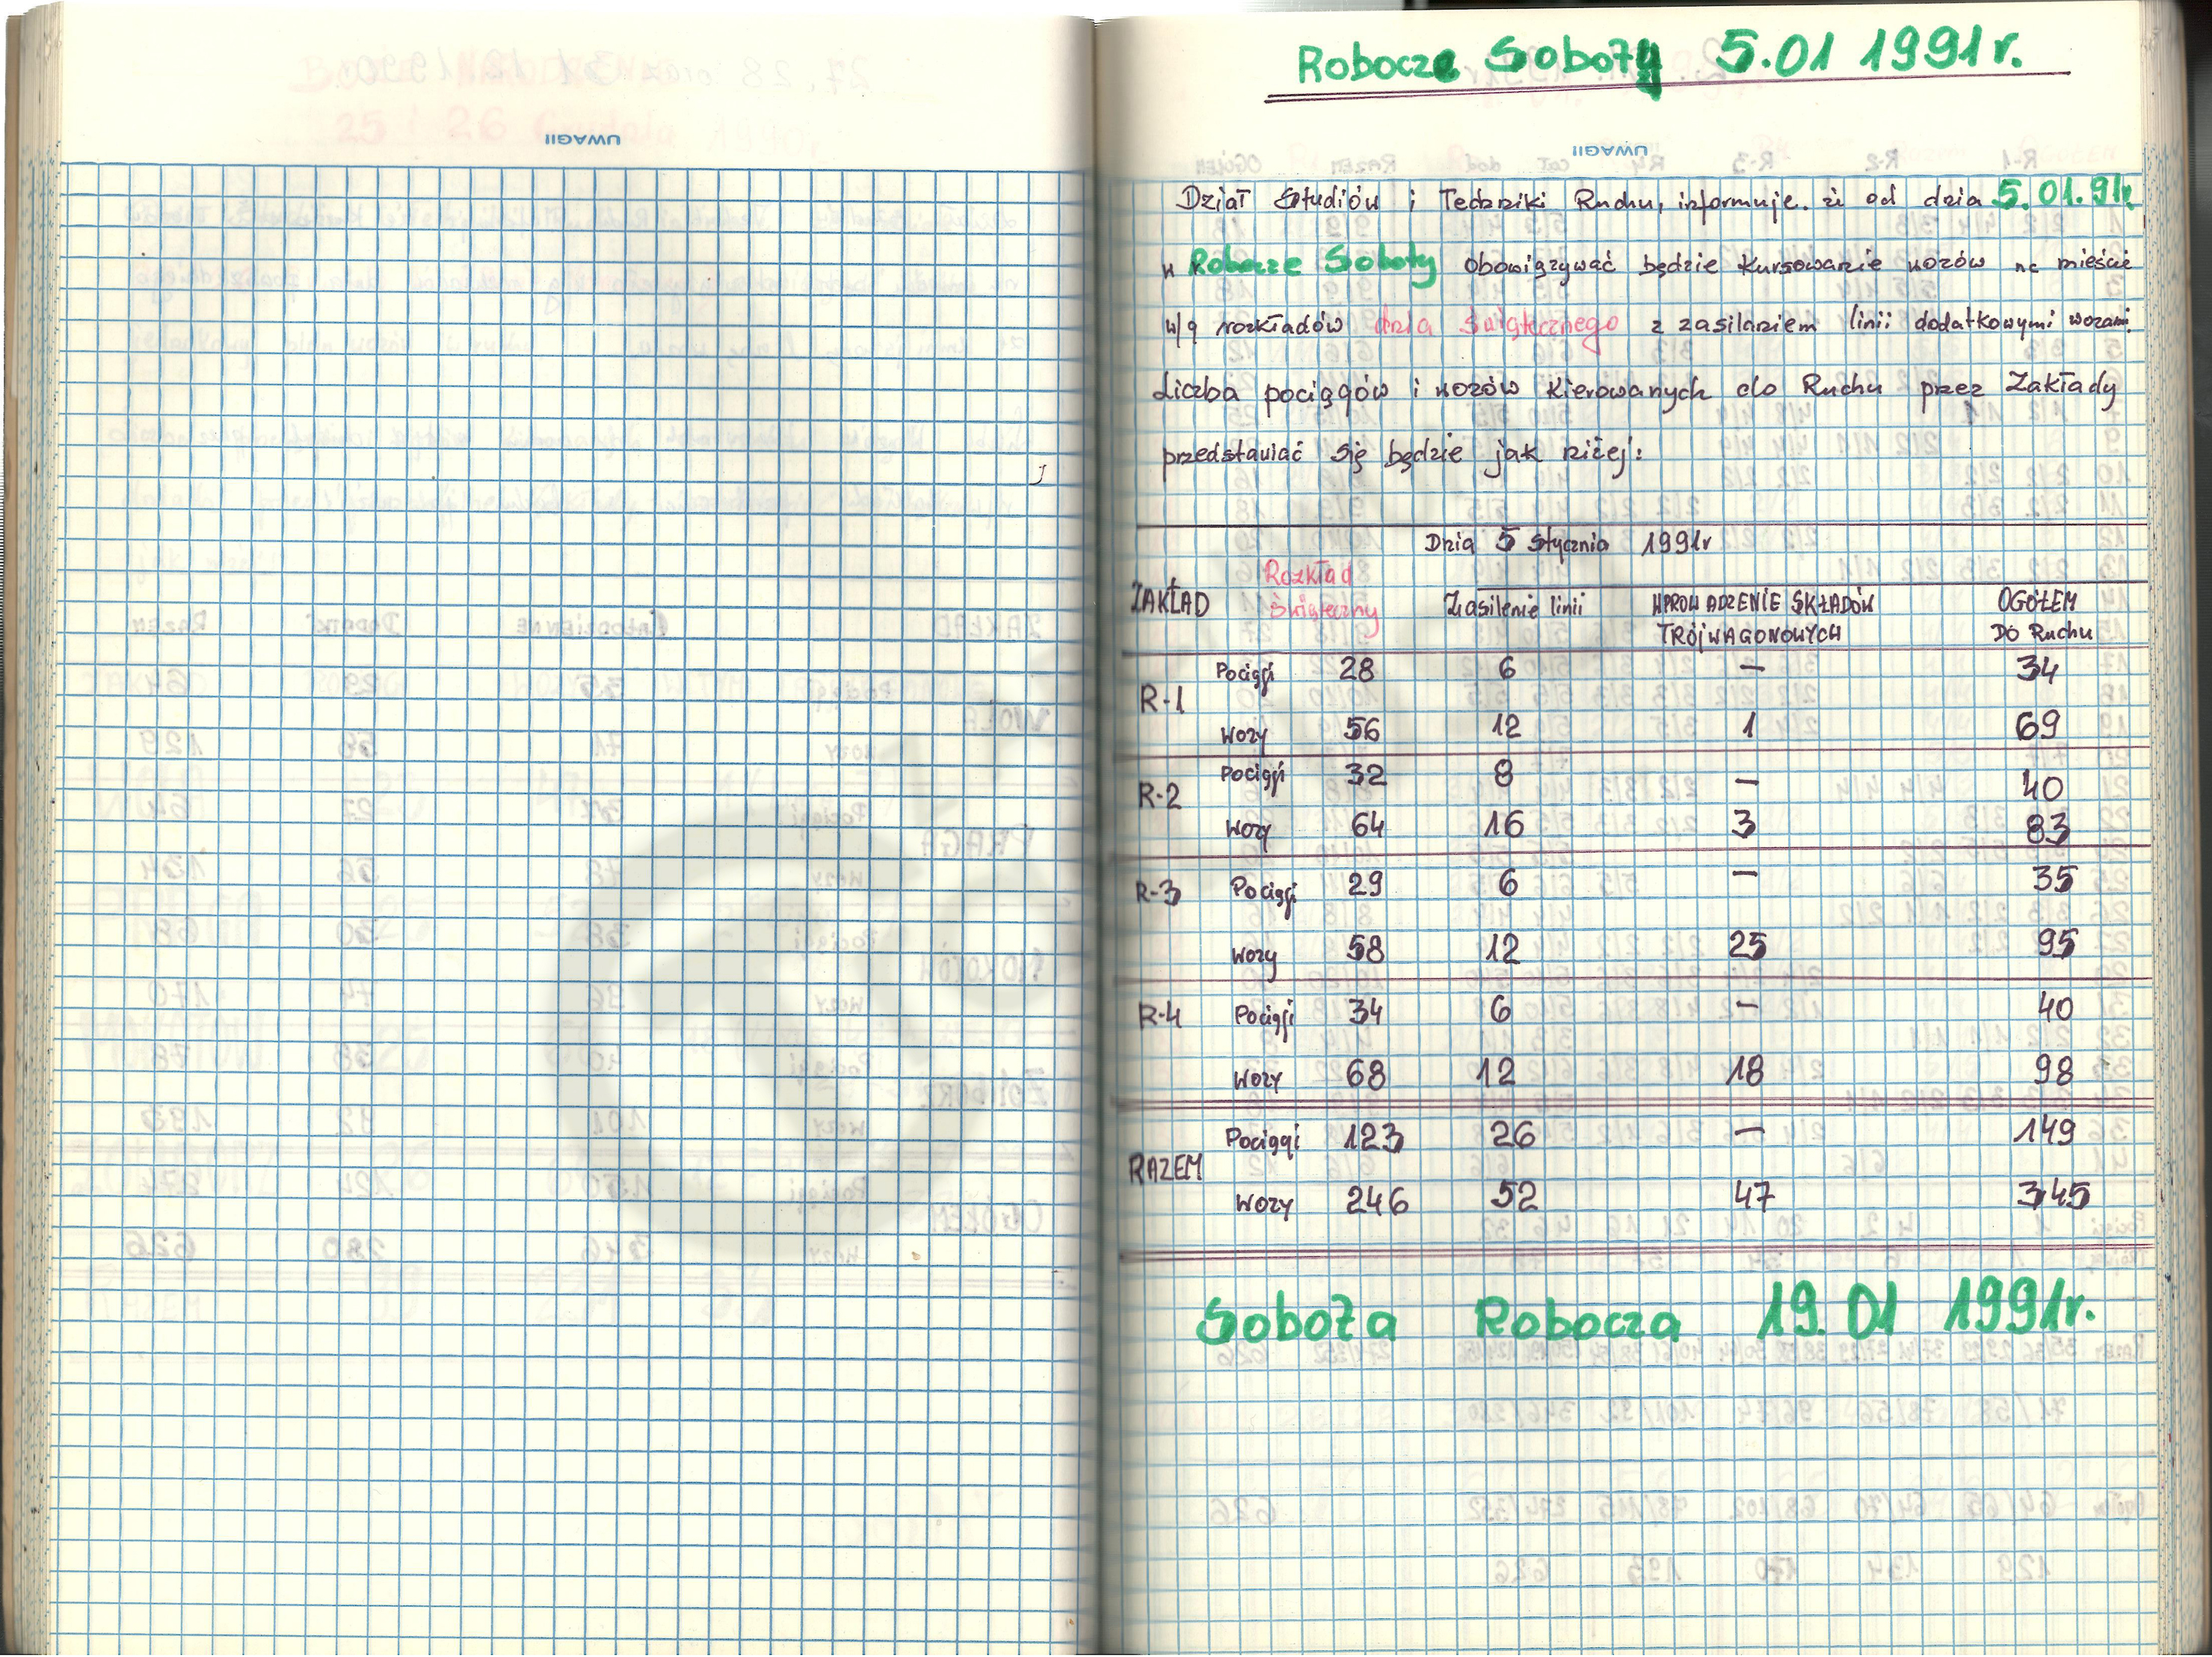 Robocze Soboty 5.01 1991r.
UWAGI!
UWAGI!
Dział Studiów i Techniki Ruchu, informuje. iż od dnia 5.01.91r.
w Robocze Soboty obowiązywać będzie kursowanie wozów na mieście
w/g rozkładów dnia świątecznego z zasilaniem linii dodatkowymi wozami.
Liczba pociągów i wozów kierowanych do Ruchu przez Zakłady
przedstawiać się będzie jak niżej:
Dnia 5 stycznia 1991r
ZAKŁAD Rozkład Świąteczny Zasilenie linii WPROWADZENIE SKŁADÓW TRÓJWAGONOWYCH OGÓŁEM DO Ruchu
R-1 Pociągi 28 6 — 34
Wozy 56 12 1 69
R-2 Pociągi 32 8 — 40
Wozy 64 16 3 83
R-3 Pociągi 29 6 — 35
Wozy 58 12 25 95
R-4 Pociągi 34 6 — 40
Wozy 68 12 18 98
RAZEM Pociągi 123 26 — 149
Wozy 246 52 47 345
Sobota Robocza 19.01 1991r.